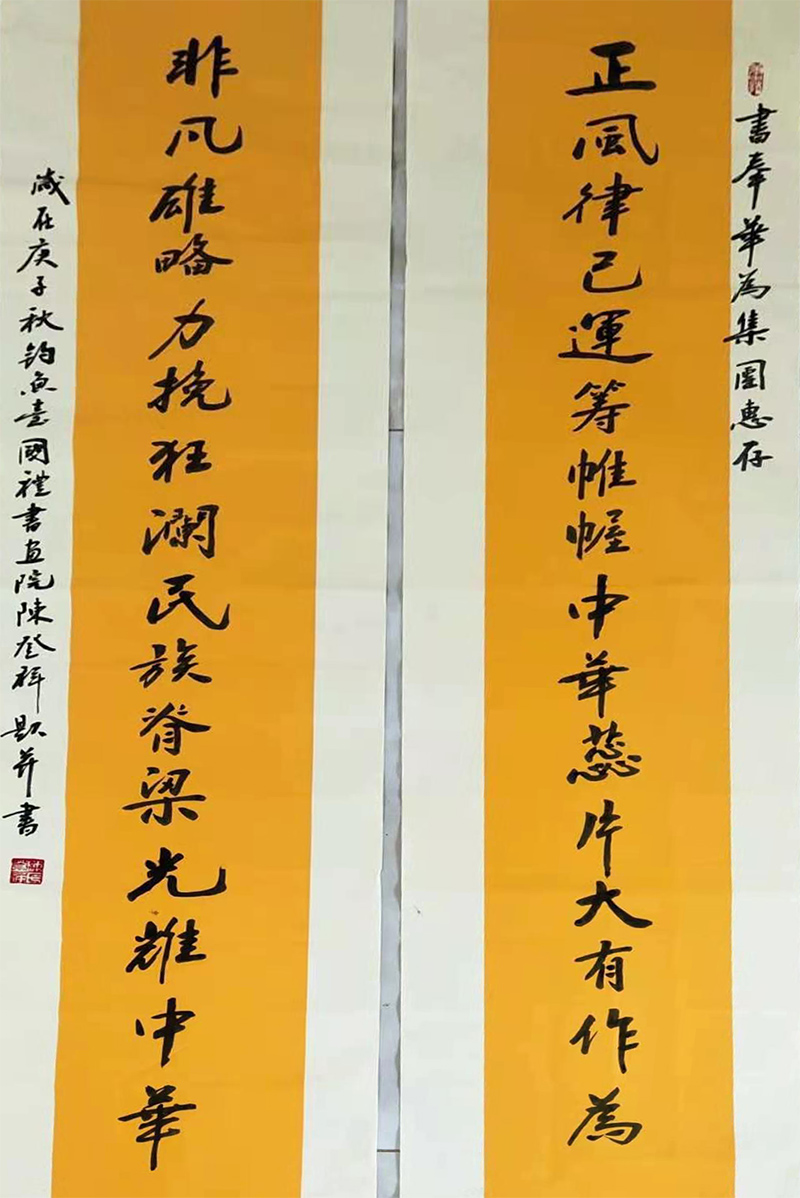 書奉華為集團惠存
正風律己運籌帷幄中華蕊片大有作為
非凡雄略力挽狂瀾民族脊梁光耀中華
歲在庚子秋釣魚臺國禮書画院陳登祥題并書